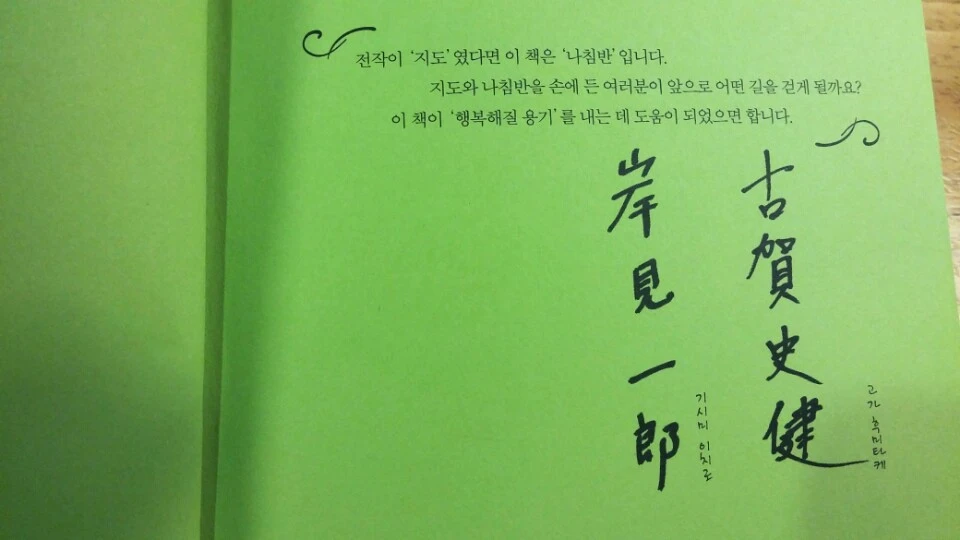 전작이 '지도'였다면 이 책은 '나침반'입니다.
지도와 나침반을 손에 든 여러분이 앞으로 어떤 길을 걷게 될까요?
이 책이 '행복해질 용기'를 내는 데 도움이 되었으면 합니다.
古賀史健
고가 후미타케
岸見一郎
기시미 이치로